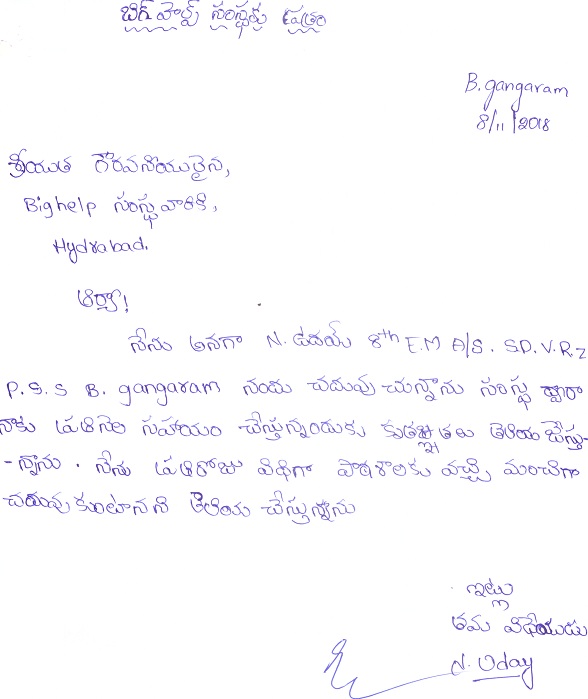 బిగ్ హెల్ప్ సంస్థకు ఉత్తరం
B. gangaram
8/11/2018
శ్రీయుత గౌరవనీయులైన,
Bighelp సంస్థ వారికి,
Hydrabad.
ఆర్యా!
నేను అనగా N. ఉదయ్ 8th E.M A/S. SD.V.R.Z
P.S.S B. gangaram నందు చదువు చున్నాను సంస్థ ద్వారా
నాకు ప్రతినెల సహాయం చేస్తున్నందుకు కృతజ్ఞతలు తెలియ చేస్తు-
-న్నాను. నేను ప్రతిరోజు విధిగా పాఠశాలకు వచ్చి మంచిగా
చదువుకుంటానని తెలియ చేస్తున్నాను
ఇట్లు
తమ విధేయుడు
N. Uday